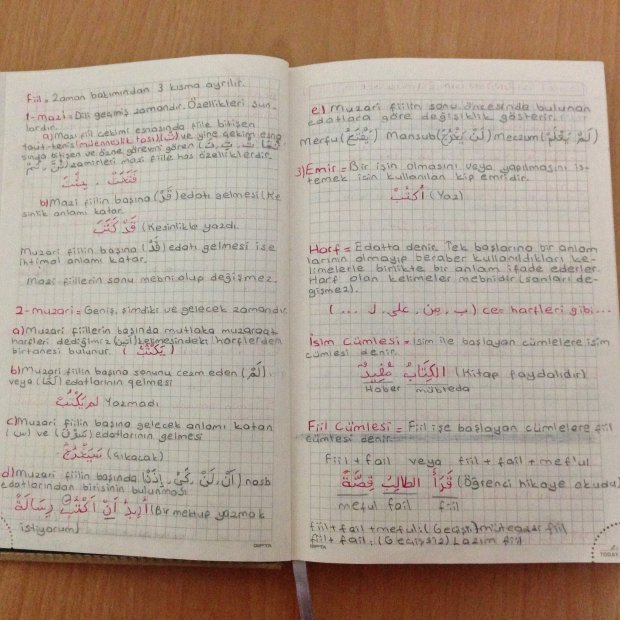 Fiil = Zaman bakımından 3 kısma ayrılır.
1-mazi = Dili geçmiş zamandır. Özellikleri şun-
lardır.
a) Mazi fiil çekimi esnasında fiile bitişen
taut-tenis (müenneslik tası) (ت) ve yine çekim esna
sınıya bitişen ve özne görevini gören
zamirleri mazi fiile has özelliklerdir.
فَتَحَتْ ، جِئْتَ
b) Mazi fiilin başına (قَدْ) edatı gelmesi (Ke
sinlik anlamı katar.
قَدْ كَتَبَ (Kesinlikle yazdı.
Muzari fiilin başına (قَدْ) edatı gelmesi ise
ihtimal anlamı katar.
Mazi fiillerin sonu mebni olup değişmez.
2-muzari = Geniş, şimdiki ve gelecek zamandır.
a) Muzari fiillerin başında mutlaka muzaraat
harfleri dediğimiz (أتين) kelimesindeki harflerden
birtanesi bulunur. (يَكْتُبُ)
b) Muzari fiilin başına sonunu cezm eden (لَمْ)
veya (لَمَّا) edatlarının gelmesi
لم يَكْتُبْ Yazmadı
c) Muzari fiilin başına gelecek anlamı katan
(س) ve (سَوْفَ) edatlarının gelmesi
سَيَخْرُجُ (Çıkacak)
d) Muzari fiilin başında (أَنْ، لَنْ، كَيْ، إِذَنْ) nasb
edatlarından birisinin bulunması
أُرِيدُ أَنْ أَكْتُبَ رِسَالَةً (Bir mektup yazmak
istiyorum)
e) Muzari fiilin sonu öncesinde bulunan
edatlara göre değişiklik gösterir.
Merfu (يَفْتَحُ) Mansub (لَنْ يَخْرُجَ) Meczum (لَمْ يَعْلَمْ)
3) Emir = Bir işin olmasını veya yapılmasını is-
temek için kullanılan kip emridir.
أُكْتُبْ (Yaz)
Harf = Edatta denir. Tek başlarına bir anlam
larının olmayıp beraber kullanıldıkları ke-
limelerle birlikte bir anlam ifade ederler.
Harf olan kelimeler mebnidir (sonları de-
ğişmez).
(ب، مِن، على، ل ...) cer harfleri gibi...
İsim Cümlesi = İsim ile başlayan cümlelere isim
cümlesi denir.
الكِتَابُ مُفِيدٌ (Kitap faydalıdır)
Haber mübteda
Fiil Cümlesi = Fiil işe başlayan cümlelere fiil
cümlesi denir.
Fiil + fail veya fiil + fail + mef'ul
قَرَأَ الطَالِبُ قِصَّةً (Öğrenci hikaye okudu)
meful fail fiil
fiil + fail + meful: (Geçişli) müteadai fiil
fiil + fail: (Geçişsiz) Lazım fiil
GIPTA
GIPTA
TODAY